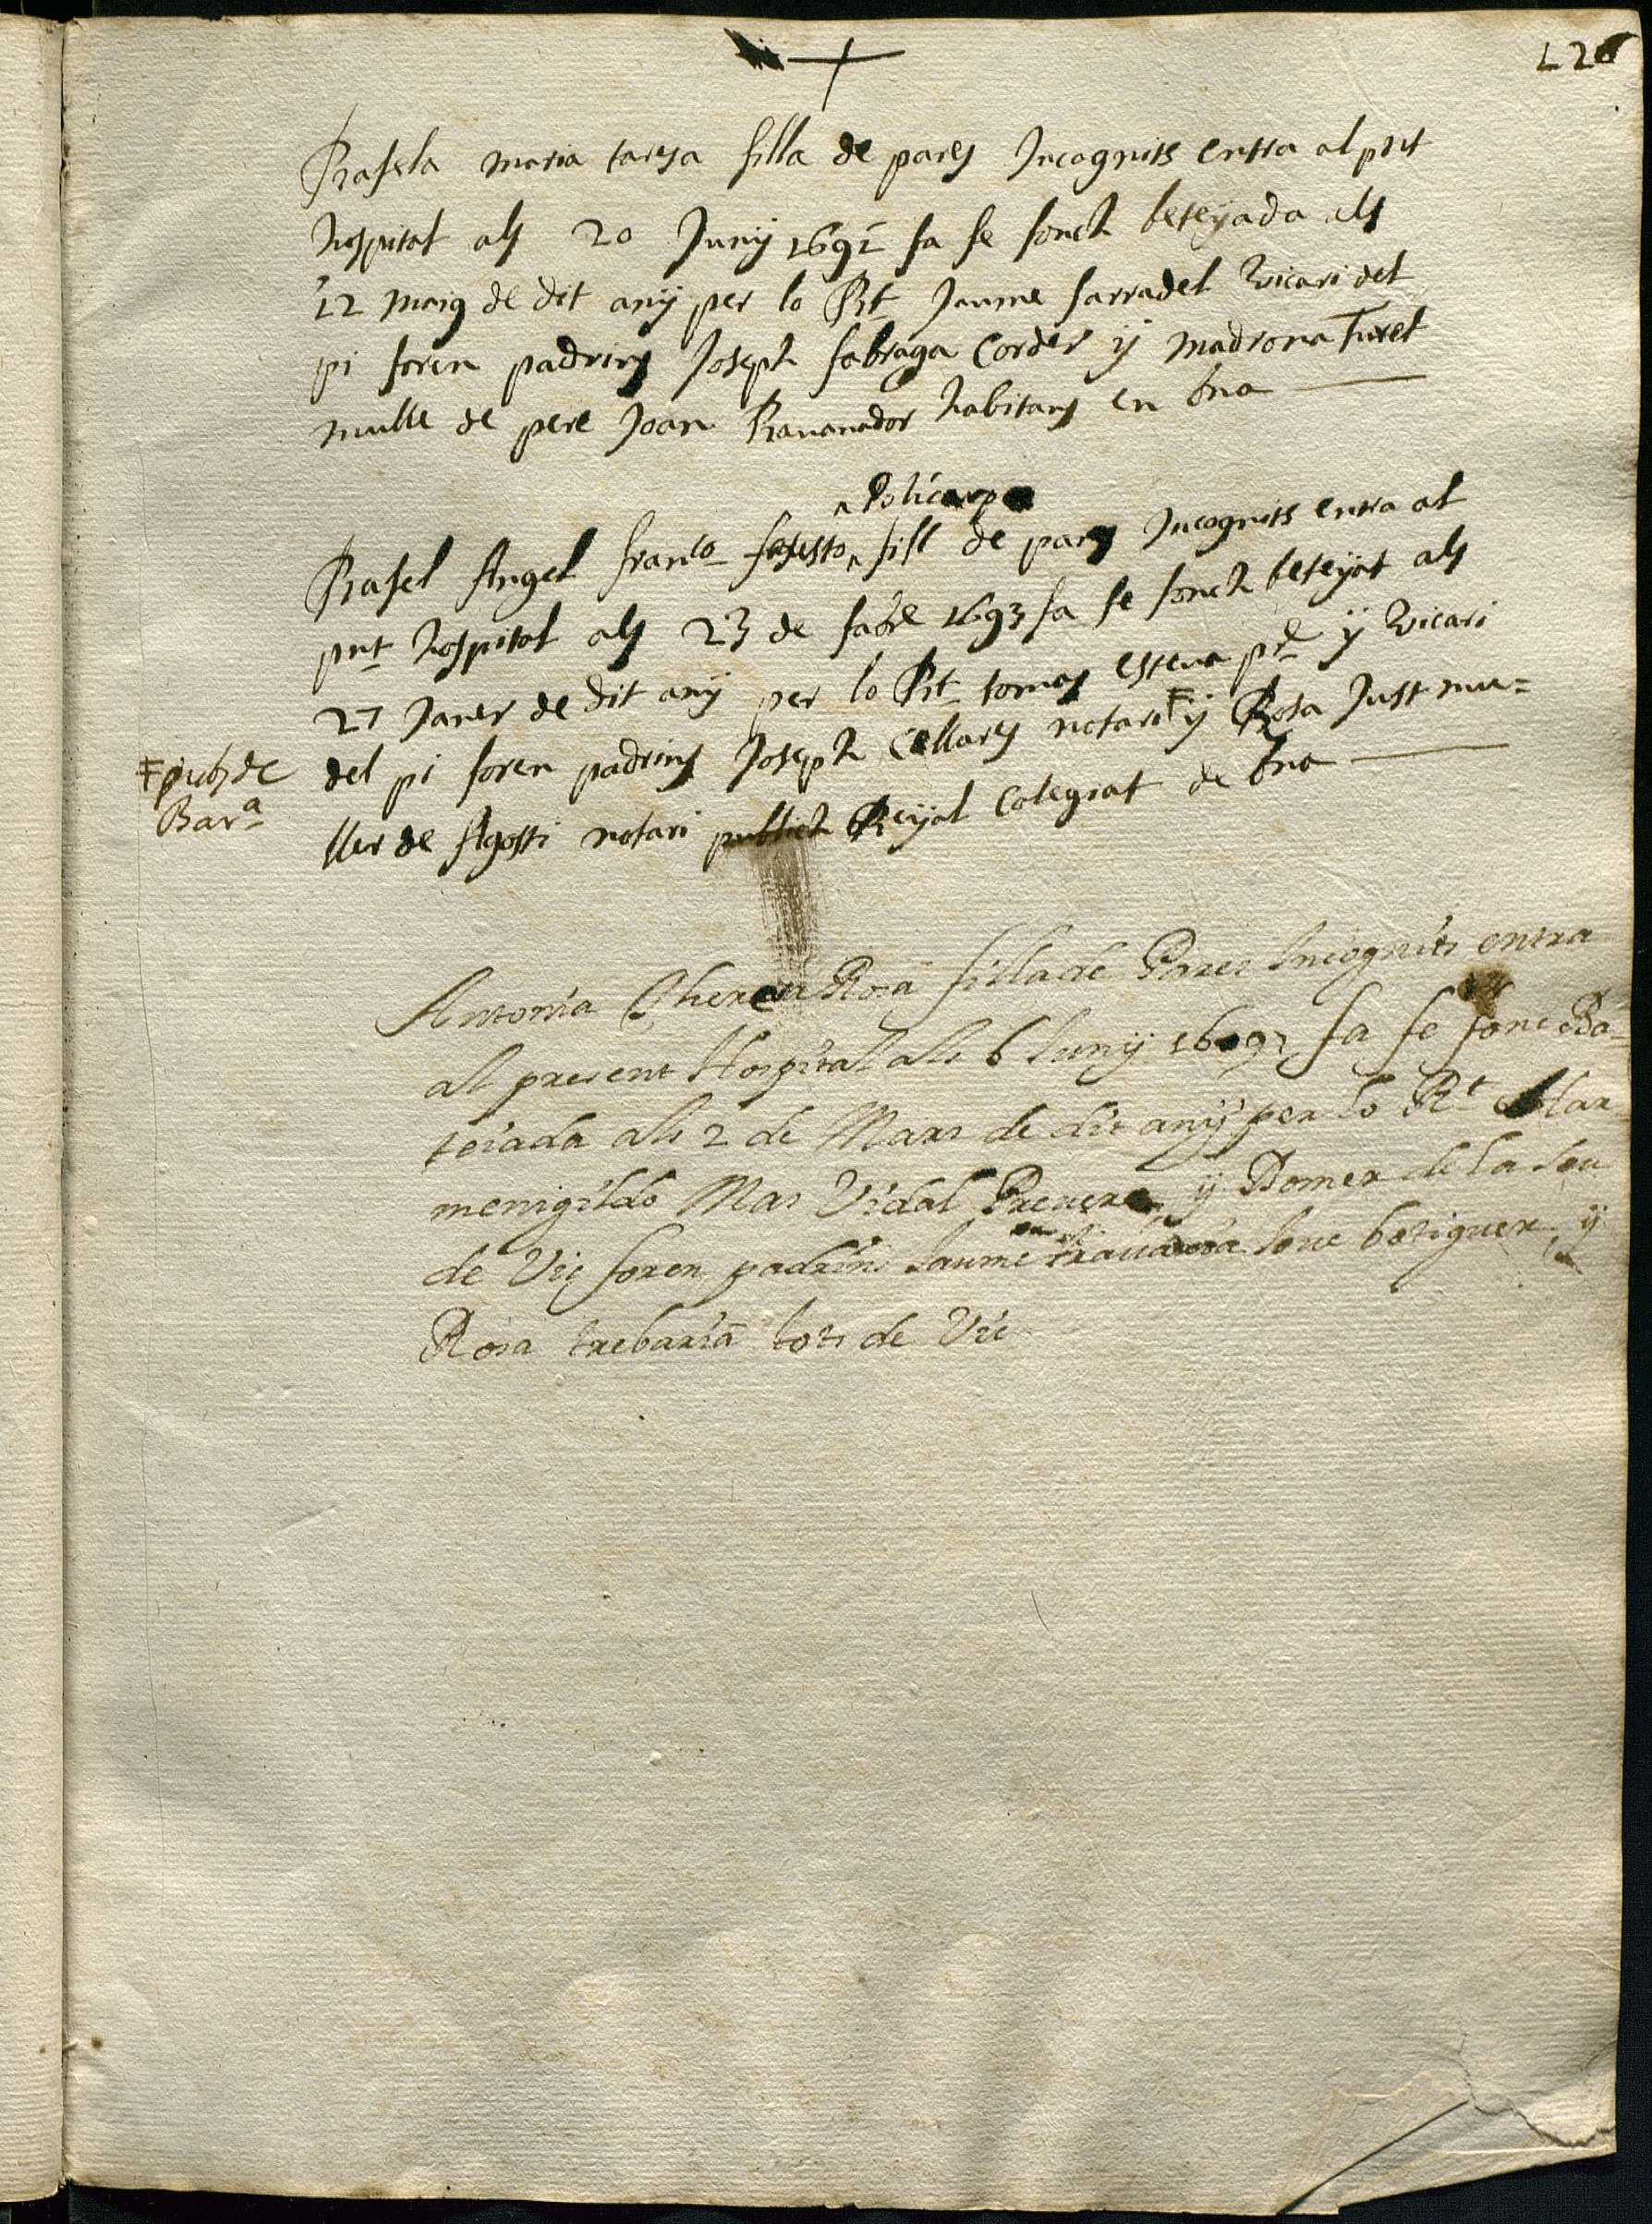 126
Rafela maria taresa filla de pares Incognits entra al pnt
hospital als 20 Juny 1691 fa fe fonch betejada als
12 maig de dit any per lo Rt Jaume sarradel vicari del
pi foren padrins Joseph fabraga Corder y madrona Turel
mulle de pere Joan Ravanador habitans en bna
Policarpo
Rafel Angel franco fausto fill de pares Incognits entra al
pnt hospital als 23 de fabre 1693 fa fe fonch betejat als
27 Janer de dit any per lo Rt tomas esteva pre y vicari
del pi foren padrins Joseph Cellares notari y Rosa Just mu=
pub de
Bara
ller de Agosti notari publich Reyal Colegiat de bna
Antonia Theresa Rosa filla de Pares Incognits entra
al present Hospital als 6 Juny 1693 fa fe fonc Ba-
teiada als 2 de Mars de dit any per lo Rt Har
menigildo Mas Vidal Prevere y Domer de la Seu
de Vic foren padrins Jaume Jove botiguer, y
Rosa trebaria tots de Vic